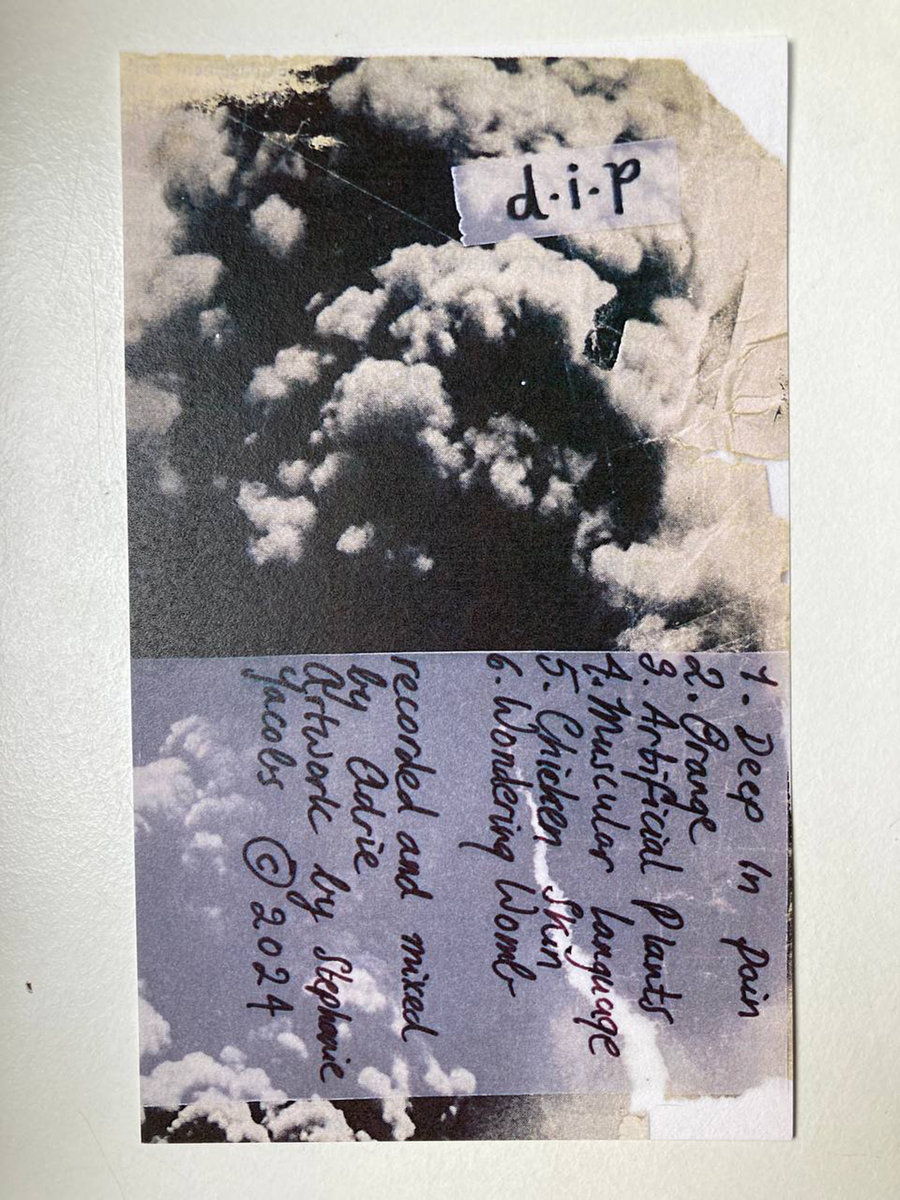 d.i.p
1. Deep In Pain
2. Grange
3. Artificial Plants
4. Muscular language
5. Chicken Skin
6. Wondering Womb
recorded and mixed
by Adrie
Artwork by Stephanie
Jacobs © 2024